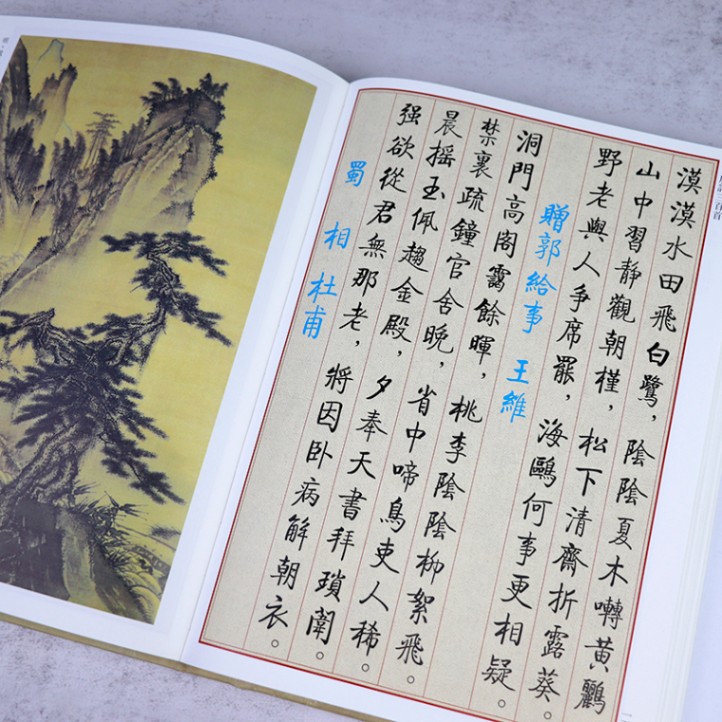 漠漠水田飛白鷺，陰陰夏木囀黃鸝
山中習靜觀朝槿，松下清齋折露葵。
野老與人争席罷，海鷗何事更相疑。
贈郭給事 王維
洞門高閣靄餘暉，桃李陰陰柳絮飛。
禁裏疏鐘官舍晚，省中啼鳥吏人稀。
晨搖玉佩趨金殿，夕奉天書拜瑣闈。
强欲從君無那老，將因卧病解朝衣。
蜀相 杜甫